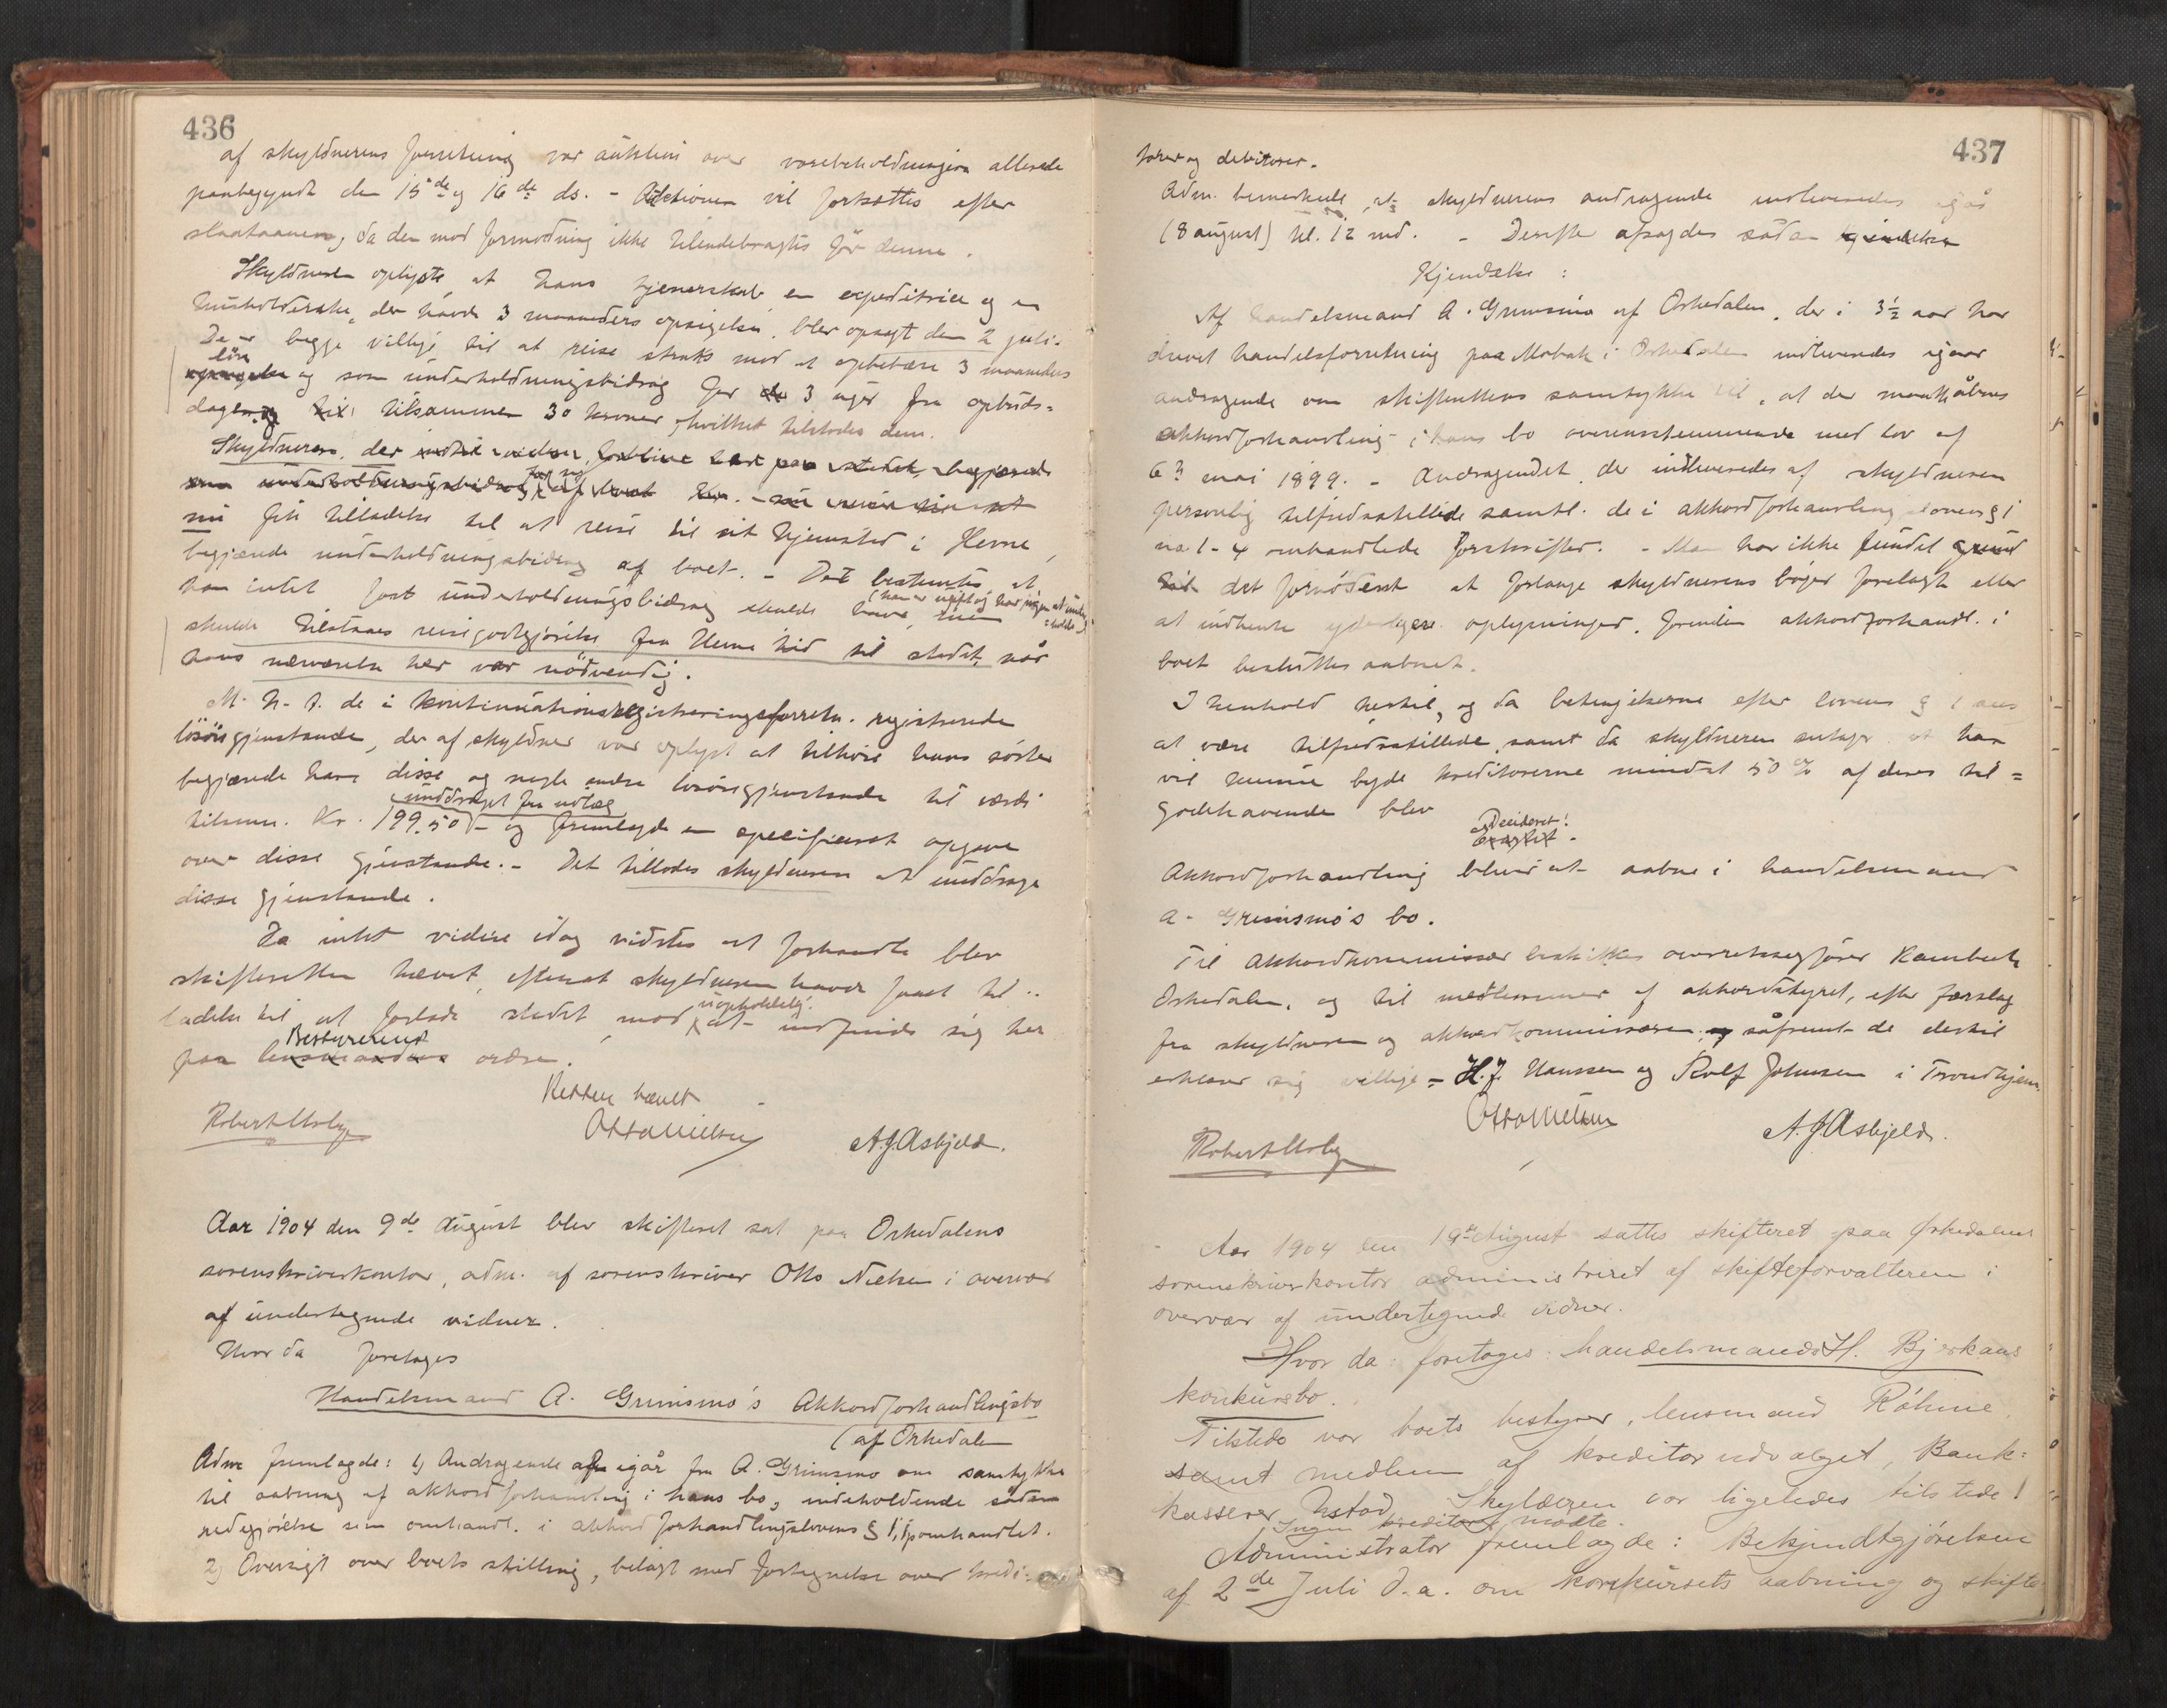 436
af skyldnerens forretning var auktion over varebeholdningen allerede
paabegyndt den 15de og 16de ds. - Auktionen vil fortsættes efter
slaataanen, da den mod formodning ikke tilendebragtes før denne.
Skyldneren oplyste, at hans tjenerskab en expeditrice og en
husholderske, der havde 3 maaneders opsigelse, blev opsagt den 2 juli.
De er begge villige til at reise straks mod at oppebære 3 maaneders
løn
og som underholdningsbidrag for de 3 uger fra opbuds=
dagen tilsammen 30 kroner, hvilket tilstodes dem.
Skyldneren, der indtil videre paa stedet, begjærede
som underholdningsbidrag af boet Kr. -
nu fik tilladelse til at reise til sit hjemsted i Hevne,
begjærede underholdningsbidrag af boet. - Det bestemtes, at
han intet fast underholdningsbidrag skulde have, men
(han er ugift og har ingen at underholde)
skulde tilstaaes reisegodtgjørelse fra Hevne hid til stedet, naar
hans nærværelse her var nødvendig.
M. h. t. de i kontinuationsregistreringsforretn. registrerede
løsøregjenstande, der af skyldner var oplyst at tilhøre hans søster
begjærede han disse og nogle andre løsøregjenstande til værdi
unddraget fra udlæg
tilsam. Kr. 199.50 - og fremlagde en specificeret opgave
over disse gjenstande. - Det tillodes skyldneren at unddrage
disse gjenstande.
Da intet videre idag vidstes at forhandle blev
skifteretten hævet, efterat skyldneren havde faaet til=
ladelse til at forlade stedet mod uopholdelig at indfinde sig her
Bestyrerens
paa lensmandens ordre.
Retten hævet
Robert Moly Otto Nielsen A.J. Asbjeld.
Aar 1904 den 9de August blev skifteret sat paa Orkedalens
sorenskriverkontor, adm. af sorenskriver Otto Nielsen i overvær
af undertegnede vidner.
Hvor da foretoges
Handelsmand A. Grimsmo's Akkordforhandlingsbo
(af Orkedalen
Adm fremlagde: 1) Andragende af igår fra A. Grimsmo om samtykke
til aabning af akkordforhandling i hans bo, indeholdende sådan
redegjørelse som omhandl. i akkordforhandlingslovens § 1, omhandlet.
2) Oversigt over boets stilling, bilagt med fortegnelse over kredi=
437
torer og debitorer.
Adm. bemærkede, at skyldnerens andragende indleveredes igår
(8 august) kl. 12 md. - Derefter afsagdes sådan kjendelse
Kjendelse:
Af handelsmand A. Grimsmo af Orkedalen, der i 3½ aar har
drevet handelsforretning paa Mobak i Orkedalen indleveredes igaar
andragende om skifterettens samtykke til, at der maatte åbnes
akkordforhandling i hans bo overensstemmende med lov af
6 mai 1899. - Andragendet, der indleveredes af skyldneren
personlig tilfredsstillede samtl. de i akkordforhandlingslovens § 1
no 1-4 omhandlede forskrifter. - Man har ikke fundet grund
til det fornødent at forlange skyldnerens bøger forelagt eller
at indhente yderligere oplysninger, forinden akkordforhandl. i
boet besluttes aabnet.
I henhold hertil, og da betingelserne efter lovens § 1 aaes
at være tilfredsstillede, samt da skyldneren antager at han
vil kunne byde kreditorerne mindst 50 % af deres til=
godehavende blev
Decideret!
eragtet -
Akkordforhandling bliver at aabne i handelsmand
A. Grimsmo's bo.
Til Akkordkommissær beskikkes overretssagfører Kambeck
Orkedalen, og til medlemmer af akkordstyret, efter forslag
fra skyldneren og akkordkommissæren, såfremt de dertil
erklærer sig villige - H.J. Hanssen og Rolf Johnsen i Trondhjem.
Robert Moly Otto Nielsen A.J. Asbjeld.
Aar 1904 den 19de August sattes skifteret paa Orkedalens
sorenskriverkontor administreret af skifteforvalteren i
overvær af undertegnede vidner.
Hvor da foretoges: handelsmands H. Bjerkans
konkursbo.
Tilstede var boets bestyrer, lensmand Röhme
samt medlem af kreditorudvalget, Bank=
kasserer Ustad. Skyldneren var ligeledes tilstede!
Ingen kreditorer mødte.
Administrator fremlagde: Bekjendtgjørelsen
af 2de Juli d.a. om konkursets aabning og skifte